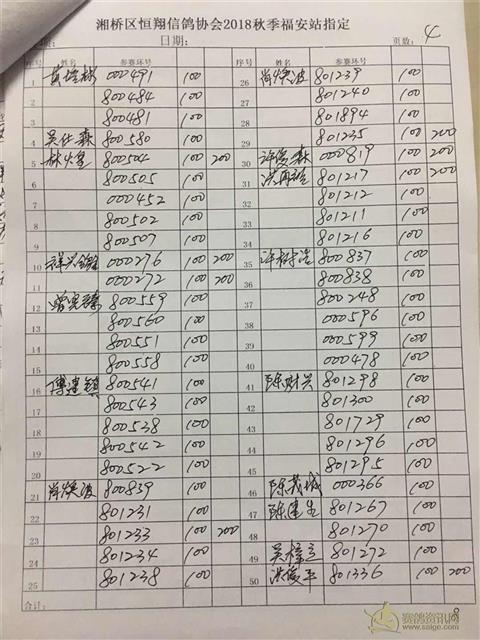 湘桥区恒翔信鸽协会2018秋季福安站指定
日期: 页数: 4
序号 姓名 参赛环号 序号 姓名 参赛环号
1 000491 100 26 肖焕波 801239 100
2 800484 100 27 801240 100
3 800481 100 28 801894 100
4 吴仕森 800580 100 29 801235 100 200
5 800504 100 200 30 许俊森 000819 100 200
6 800505 100 31 801217 100 200
7 000452 100 32 801212 100
8 800502 100 33 801211 100
9 800507 100 34 801216 100
10 000276 100 200 35 800837 100
11 000272 100 200 36 800838 100
12 800559 100 37 800248 100
13 800560 100 38 000596 100
14 800551 100 39 000599 100
15 800558 100 40 000478 100
16 傅建镇 800541 100 41 陈财兴 801298 100
17 800543 100 42 801300 100
18 800538 100 43 801729 100
19 800542 100 44 801296 100
20 800522 100 45 801295 100
21 肖焕波 800839 100 46 陈茂城 000366 100
22 801231 100 47 陈建生 801267 100
23 801233 100 200 48 801270 100
24 801234 100 49 801272 100
25 801238 100 50 洪俊平 801336 100 200
合计:
赛鸽资讯网
www.saige.com